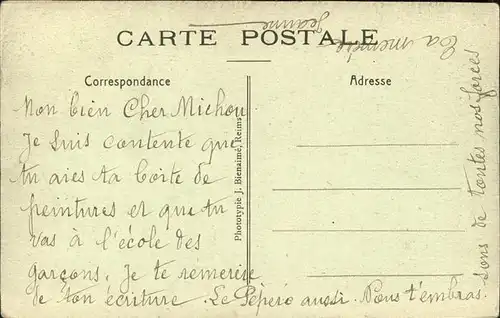 CARTE POSTALE
Correspondance
Adresse
Mon bien Cher Michou
Je suis contente que
tu aies ta boite de
peintures et que tu
vas à l'école des
garçons. Je te remercie
de ton écriture. Le Pépère aussi. Nous t'embras
sons de toutes nos forces
Ta mémée
Jeanne
Phototypie J. Bienaimé, Reims